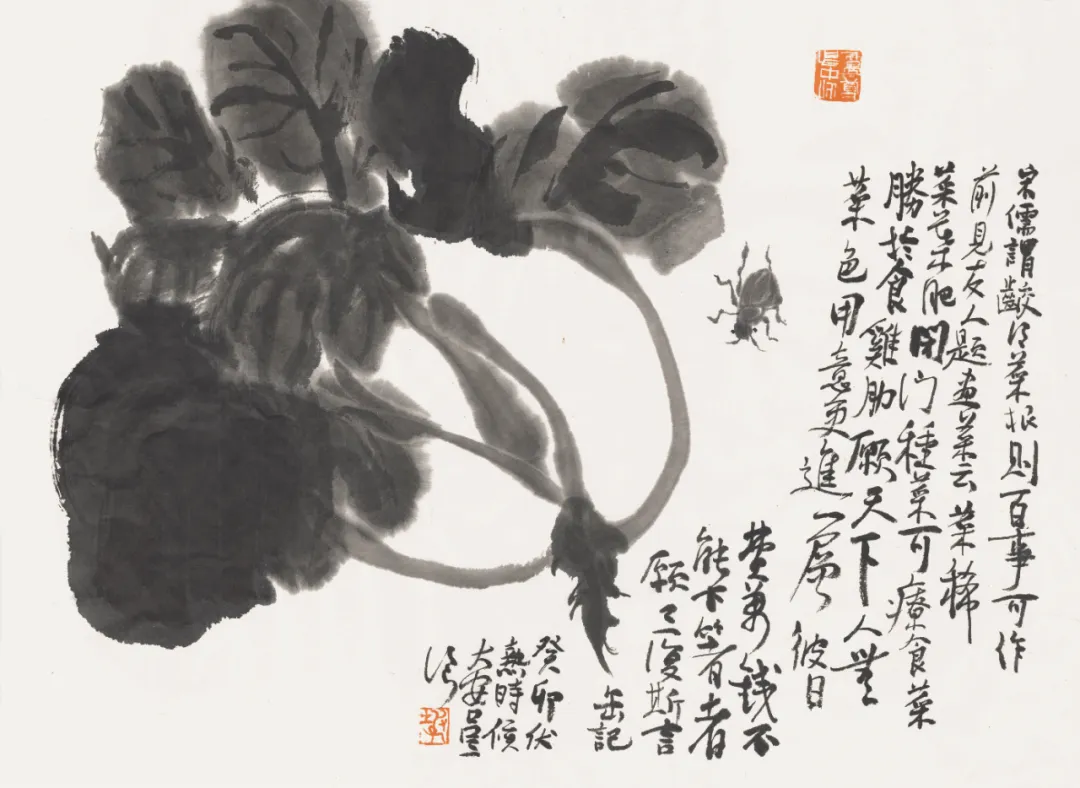 宋儒謂齩得菜根則百事可作
前見友人題畫菜云菜稀
菜未肥閉門種菜可療食菜
勝於食雞肋願天下人無
菜色用意更進一層彼日
費萬錢不
能下箸者
願三復斯言
缶記
癸卯伏
熱時候
大安